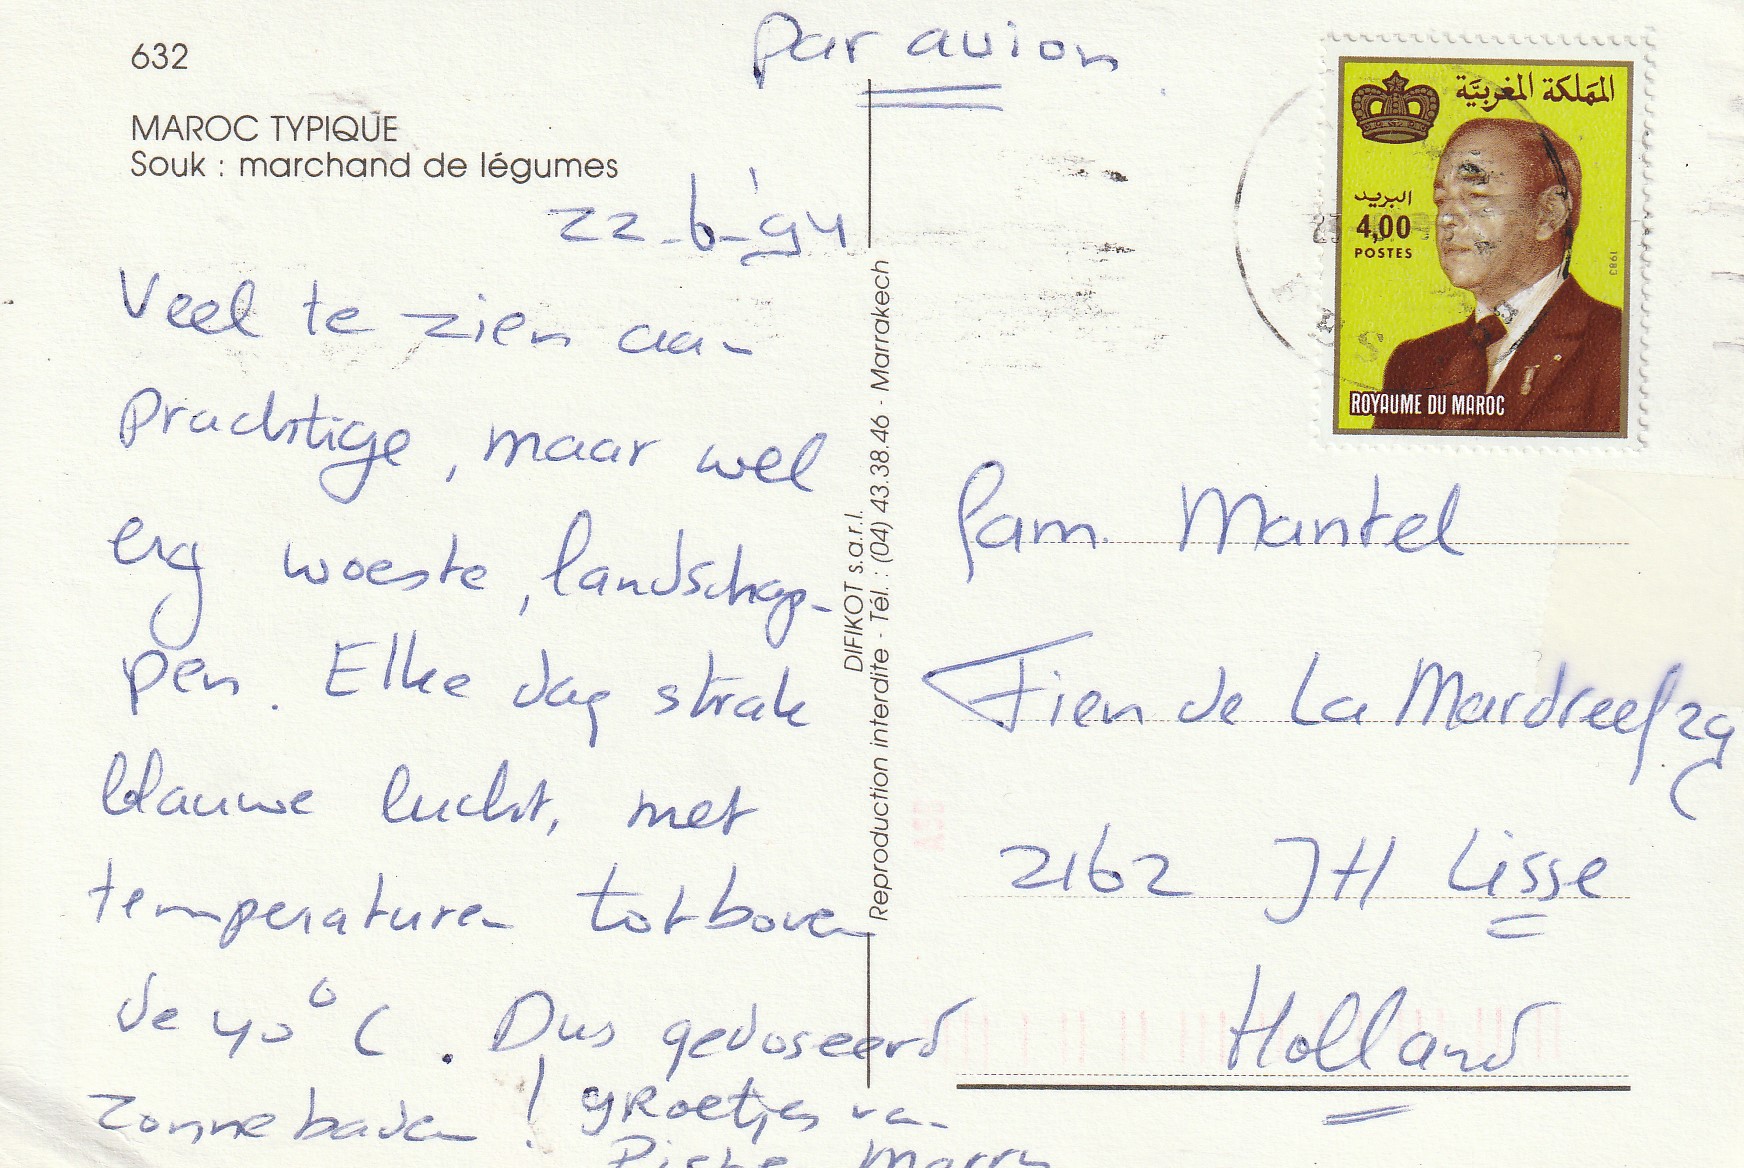 632
MAROC TYPIQUE
Souk : marchand de légumes
par avion
22-6-'94
Veel te zien aan
prachtige, maar wel
erg woeste, landschap-
pen. Elke dag strak
blauwe lucht, met
temperaturen tot boven
de 40°C. Dus gedoseerd
zonnebaden! groetjes van
DIFIKOT s.a.r.l.
Reproduction interdite - Tél. : (04) 43.38.46 - Marrakech
المملكة المغربية
البريد
4,00
POSTES
1983
ROYAUME DU MAROC
fam. Mantel
Fien de La Mardreef 29
2162 JH Lisse
Holland